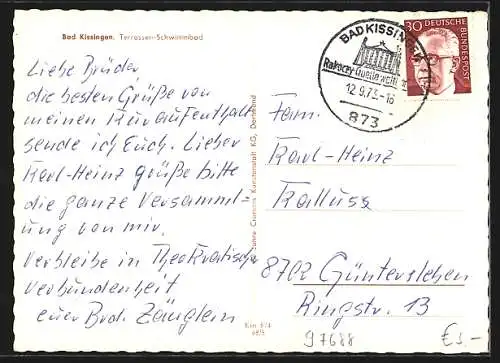 Bad Kissingen. Terrassen-Schwimmbad
Liebe Brüder,
die besten Grüße von
meinen Kuraufenthalt
sende ich Euch. Lieber
Karl-Heinz grüße bitte
die ganze Versamml-
ung von mir.
Verbleibe in Theokratischer
Verbundenheit
euer Brd. Zänglein
Cramers Kunstanstalt KG, Dortmund
BAD KISSINGEN
Rakoczy-Quelle
12.9.73.-16
873
30 DEUTSCHE
BUNDESPOST
Fam.
Karl-Heinz
Kalluss
8702 Güntersleben
Ringstr. 13
97688
€ 3.-